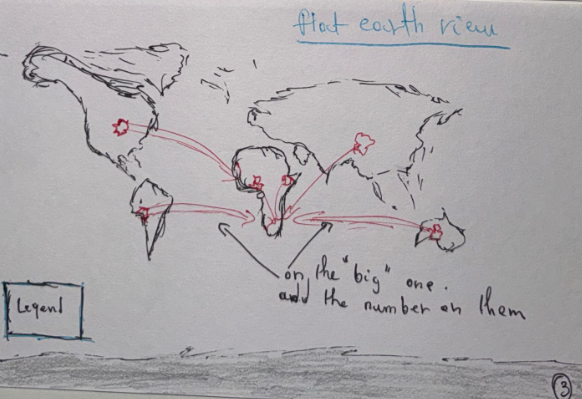 flat earth view
on the "big" one.
add the number on them
Legend
3